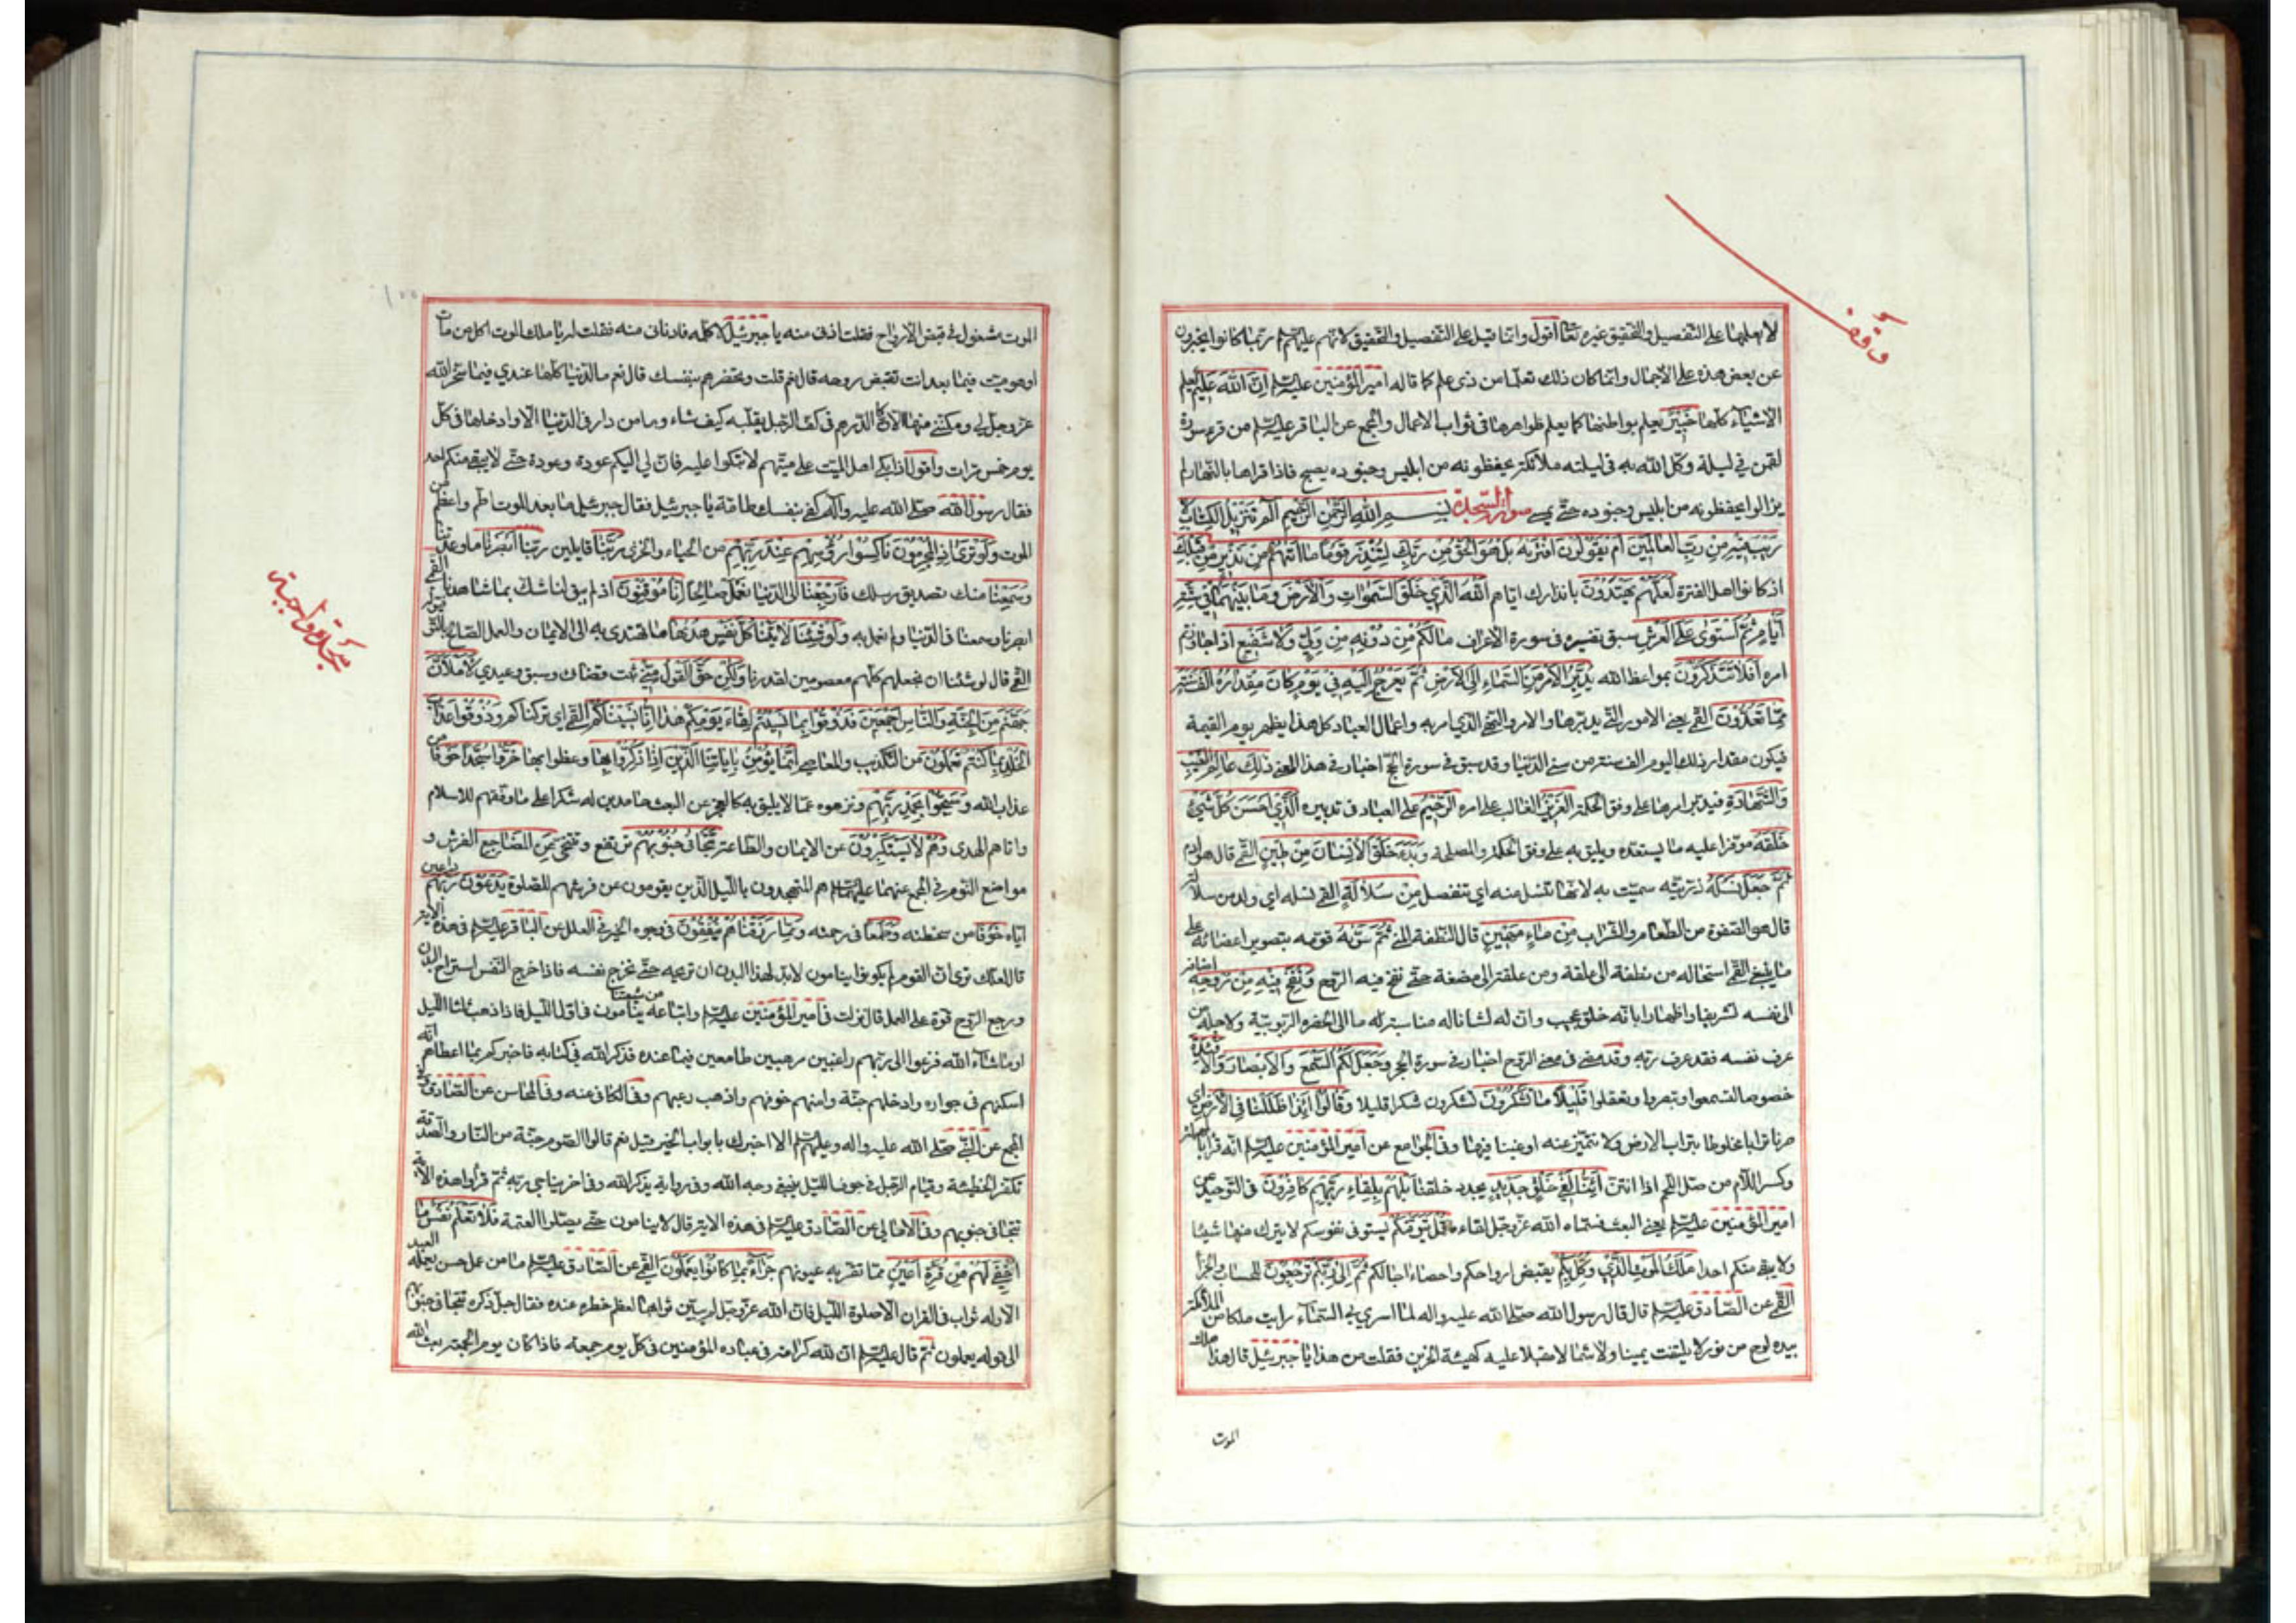 لا يعلمها على التفصيل والتحقيق غيره تعالى أقول وانما قيل على التفصيل والتحقيق لانهم عليهم ربما كانوا يخبرون
عن بعض هذه على الاجمال وانما كان ذلك تعلما من ذى علم كما قاله امير المؤمنين عليه السلم اِنَّ اللّٰهَ عَلِيْمٌ يعلم
الاشياء كلها خَبِيْرٌ يعلم بواطنها كما يعلم ظواهرها فى ثواب الاعمال والمجمع عن الباقر عليه السلم من قرء سورة
لقمن فى ليلة وكل الله به فى ليلته ملائكة يحفظونه من ابليس وجنوده يصبح فاذا قراها بالنهار لم
يزالوا يحفظونه من ابليس وجنوده حتى يمسى سورة السجدة بِسْمِ اللّٰهِ الرَّحْمٰنِ الرَّحِيْمِ الٓمٓ تَنْزِيْلُ الْكِتَابِ لا
رَيْبَ فِيْهِ مِنْ رَبِّ الْعَالَمِيْنَ اَمْ يَقُوْلُوْنَ افْتَرٰيهُ بَلْ هُوَ الْحَقُّ مِنْ رَبِّكَ لِتُنْذِرَ قَوْمًا مَا اَتٰيهُمْ مِنْ نَذِيْرٍ مِنْ قَبْلِكَ
اذ كانوا اهل الفترة لَعَلَّهُمْ يَهْتَدُوْنَ بانذارك اياهم اَللّٰهُ الَّذِيْ خَلَقَ السَّمٰوَاتِ وَالْاَرْضَ وَمَا بَيْنَهُمَا فِيْ سِتَّةِ
اَيَّامٍ ثُمَّ اسْتَوٰى عَلَى الْعَرْشِ سبق تفسيره فى سورة الاعراف مَالَكُمْ مِنْ دُوْنِهِ مِنْ وَلِيٍّ وَلَا شَفِيْعٍ اذا جاوزتم
امره اَفَلَا تَتَذَكَّرُوْنَ بمواعظ الله يُدَبِّرُ الْاَمْرَ مِنَ السَّمَاءِ اِلَى الْاَرْضِ ثُمَّ يَعْرُجُ اِلَيْهِ فِيْ يَوْمٍ كَانَ مِقْدَارُهُ اَلْفَ سَنَةٍ
مِمَّا تَعُدُّوْنَ القمى يعنى الامور التى يدبرها والامر والنهى الذى امر به واعمال العباد كل هذا يظهر يوم القيمة
فيكون مقدار ذلك اليوم الف سنة من سنى الدنيا وقد سبق فى سورة الحج اخبار فى هذا المعنى ذٰلِكَ عَالِمُ الْغَيْبِ
وَالشَّهَادَةِ فيدبر امرها على وفق الحكمة الْعَزِيْزُ الغالب على امره الرَّحِيْمُ على العباد فى تدبيره الَّذِيْ اَحْسَنَ كُلَّ شَيْءٍ
خَلَقَهُ موفرا عليه ما يستعده ويليق به على وفق الحكمة والمصلحة وَبَدَءَ خَلْقَ الْاِنْسَانِ مِنْ طِيْنٍ القمى قال هو ادم
ثُمَّ جَعَلَ نَسْلَهُ ذريته سميت به لانها تنسل منه اى تنفصل مِنْ سُلَالَةٍ القمى نسله اى ولده من سلالة
قال هو الصفوة من الطعام والشراب مِنْ مَاءٍ مَهِيْنٍ قال النطفة المنى ثُمَّ سَوّٰيهُ قومه بتصوير اعضائه على
ما ينبغى القمى استحاله من نطفة الى علقة ومن علقة الى مضغة حتى نفخ فيه الروح وَنَفَخَ فِيْهِ مِنْ رُوْحِهِ اضافه
الى نفسه تشريفا واظهارا بانه خلق عجيب وان له لشانا له مناسبة ما الى الحضرة الربوبية ولاجله من
عرف نفسه فقد عرف ربه وقد مضى فى معنى الروح اخبار فى سورة الحجر وَجَعَلَ لَكُمُ السَّمْعَ وَالْاَبْصَارَ وَالْاَفْئِدَةَ
خصوصا لتسمعوا وتبصروا وتعقلوا قَلِيْلًا مَا تَشْكُرُوْنَ تشكرون شكرا قليلا وَقَالُوْا اَئِذَا ضَلَلْنَا فِي الْاَرْضِ اى
صرنا ترابا مخلوطا بتراب الارض ولا نتميز عنه او غبنا فيها وفى الجوامع عن امير المؤمنين عليه السلم انه قرا بالصاد
وكسر اللام من صل اللحم اذا انتن اَئِنَّا لَفِيْ خَلْقٍ جَدِيْدٍ يجدد خلقنا بَلْ هُمْ بِلِقَاءِ رَبِّهِمْ كَافِرُوْنَ فى التوحيد عن
امير المؤمنين عليه السلم يعنى البعث فسماه الله عز وجل لقاءه قُلْ يَتَوَفّٰيكُمْ يستوفى نفوسكم لا يترك منها شيئا
ولا يبقى منكم احدا مَلَكُ الْمَوْتِ الَّذِيْ وُكِّلَ بِكُمْ بقبض ارواحكم واحصاء اجالكم ثُمَّ اِلٰى رَبِّكُمْ تُرْجَعُوْنَ للحساب والجزاء
القمى عن الصادق عليه السلم قال قال رسول الله صلى الله عليه واله لما اسرى بى الى السماء رايت ملكا من الملائكة
بيده لوح من نور لا يلتفت يمينا ولا شمالا مقبلا عليه كهيئة الحزين فقلت من هذا يا جبرئيل قال هذا ملك
الموت
وقف
الموت مشغول فى قبض الارواح فقلت ادننى منه يا جبرئيل لاكلمه فادنانى منه فقلت له يا ملك الموت اكل من مات
او هو ميت فيما بعد انت تقبض روحه قال نعم قلت وتحضرهم بنفسك قال نعم ما الدنيا كلها عندى فيما سخر الله
عز وجل لى ومكننى منها الا كالدرهم فى كف الرجل يقلبه كيف شاء وما من دار فى الدنيا الا وادخلها فى كل
يوم خمس مرات واقول اذا بكى اهل الميت على ميتهم لا تبكوا عليه فان لى اليكم عودة وعودة حتى لا يبقى منكم احد
فقال رسول الله صلى الله عليه واله كفى بنفسك طامة يا جبرئيل فقال جبرئيل ما بعد الموت اطم واعظم من
الموت وَلَوْ تَرٰى اِذِ الْمُجْرِمُوْنَ نَاكِسُوْا رُؤُسِهِمْ عِنْدَ رَبِّهِمْ من الحياء والخزى رَبَّنَا قايلين ربنا اَبْصَرْنَا ما وعدتنا
وَسَمِعْنَا منك تصديق رسلك فَارْجِعْنَا الى الدنيا نَعْمَلْ صَالِحًا اِنَّا مُوْقِنُوْنَ اذ لم يبق لنا شك بما شاهدنا القمى
ابصرنا وسمعنا فى الدنيا ولم نعمل به وَلَوْ شِئْنَا لَاٰتَيْنَا كُلَّ نَفْسٍ هُدٰيهَا ما تهتدى به الى الايمان والعمل الصالح بالتوفيق
القمى قال لو شئنا ان نجعلهم كلهم معصومين لقدرنا وَلٰكِنْ حَقَّ الْقَوْلُ مِنِّيْ ثبت قضائى وسبق وعيدى لَاَمْلَاَنَّ
جَهَنَّمَ مِنَ الْجِنَّةِ وَالنَّاسِ اَجْمَعِيْنَ فَذُوْقُوْا بِمَا نَسِيْتُمْ لِقَاءَ يَوْمِكُمْ هٰذَا اِنَّا نَسِيْنَاكُمْ القمى اى تركناكم وَذُوْقُوْا عَذَابَ
الْخُلْدِ بِمَا كُنْتُمْ تَعْمَلُوْنَ من التكذيب والمعاصى اِنَّمَا يُؤْمِنُ بِاٰيَاتِنَا الَّذِيْنَ اِذَا ذُكِّرُوْا بِهَا وعظوا بها خَرُّوْا سُجَّدًا خوفا من
عذاب الله وَسَبَّحُوْا بِحَمْدِ رَبِّهِمْ ونزهوه عما لا يليق به كالعجز عن البعث حامدين له شكرا على ما وفقهم للاسلام
واتاهم الهدى وَهُمْ لَا يَسْتَكْبِرُوْنَ عن الايمان والطاعة تَتَجَافٰى جُنُوْبُهُمْ ترتفع وتتنحى عَنِ الْمَضَاجِعِ الفرش و
مواضع النوم فى المجمع عنهما عليهما السلم هم المتهجدون بالليل الذين يقومون عن فرشهم للصلوة يَدْعُوْنَ رَبَّهُمْ داعين
اياه خَوْفًا من سخطه وَطَمَعًا فى رحمته وَمِمَّا رَزَقْنَاهُمْ يُنْفِقُوْنَ فى وجوه الخير فى العلل عن الباقر عليه السلم فى هذه الاية
قال لعلك ترى ان القوم لم يكونوا ينامون لا بد لهذا البدن ان تريحه حتى يخرج نفسه فاذا خرج النفس استراح البدن
ورجع الروح قوة على العمل قال نزلت فى امير المؤمنين عليه السلم واتباعه من شيعتنا ينامون فى اول الليل فاذا ذهب ثلثا الليل
او ما شاء الله فزعوا الى ربهم راغبين مرهبين طامعين فيما عنده فذكر الله فى كتابه فاخبركم بما اعطاهم انه
اسكنهم فى جواره وادخلهم جنته وامنهم خوفهم واذهب رعبهم وفى الكافى عنه وفى المحاسن عن الصادق و
المجمع عن النبى صلى الله عليه واله وعليهم السلم الا اخبرك بابواب الخير قيل نعم قالوا الصوم جنة من النار والصدقة
تكفر الخطيئة وقيام الرجل فى جوف الليل يبتغى وجه الله وفى رواية يذكر الله وفى اخر يناجى ربه ثم قرا وا هذه الاية
تتجافى جنوبهم وفى الامالى عن الصادق عليه السلم فى هذه الاية قال لا ينامون حتى يصلوا العتمة فَلَا تَعْلَمُ نَفْسٌ مَا
اُخْفِيَ لَهُمْ مِنْ قُرَّةِ اَعْيُنٍ مما تقر به عيونهم جَزَاءً بِمَا كَانُوْا يَعْمَلُوْنَ القمى عن الصادق عليه السلم ما من عمل حسن يعمله العبد
الا وله ثواب فى القران الا صلوة الليل فان الله عز وجل لم يبين ثوابها لعظم خطره عنده فقال جل ذكره تتجافى جنوبهم
الى قوله يعملون ثم قال عليه السلم ان لله كرامة فى عباده المؤمنين فى كل يوم جمعة فاذا كان يوم الجمعة بعث الله
سجدة واجبة